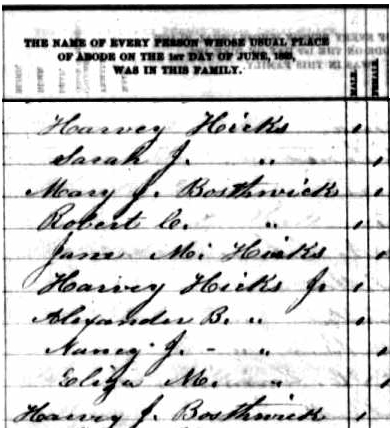 THE NAME OF EVERY PERSON WHOSE USUAL PLACE
OF ABODE ON THE 1ST DAY OF JUNE, 1885,
WAS IN THIS FAMILY.
MALE.
FEMALE.
Harvey Hicks
Sarah J. "
Mary J. Bosthwick
Robert C. "
Jane M. Hicks
Harvey Hicks Jr
Alexander B. "
Nancy J. - "
Eliza M. "
Harvey J. Bosthwick